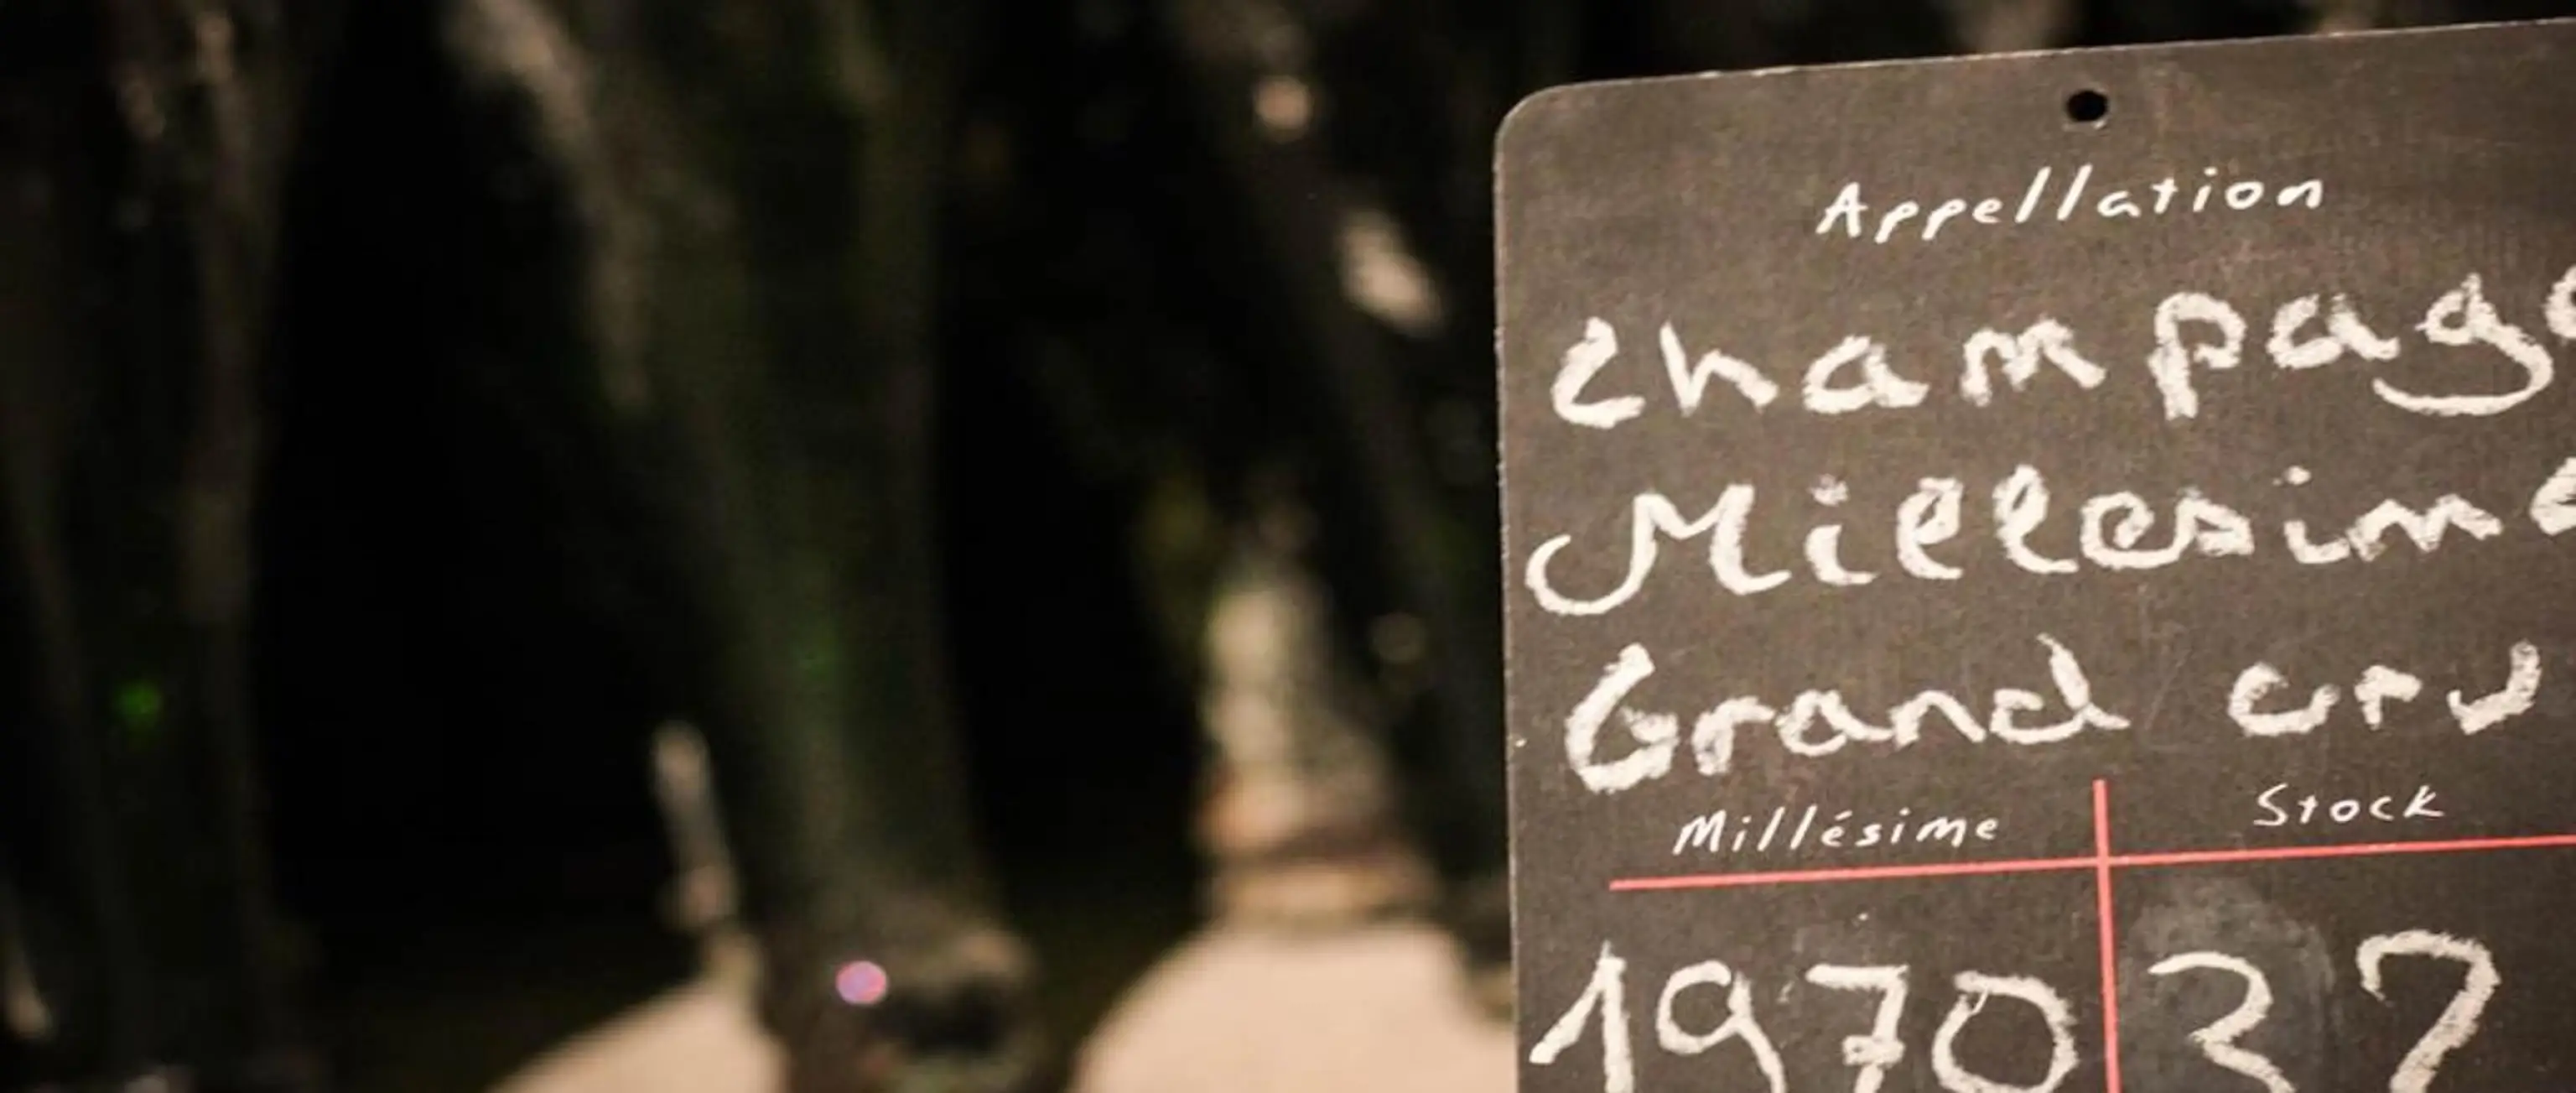 Appellation
Champag
Millesime
Grand cru
Millésime Stock
1970